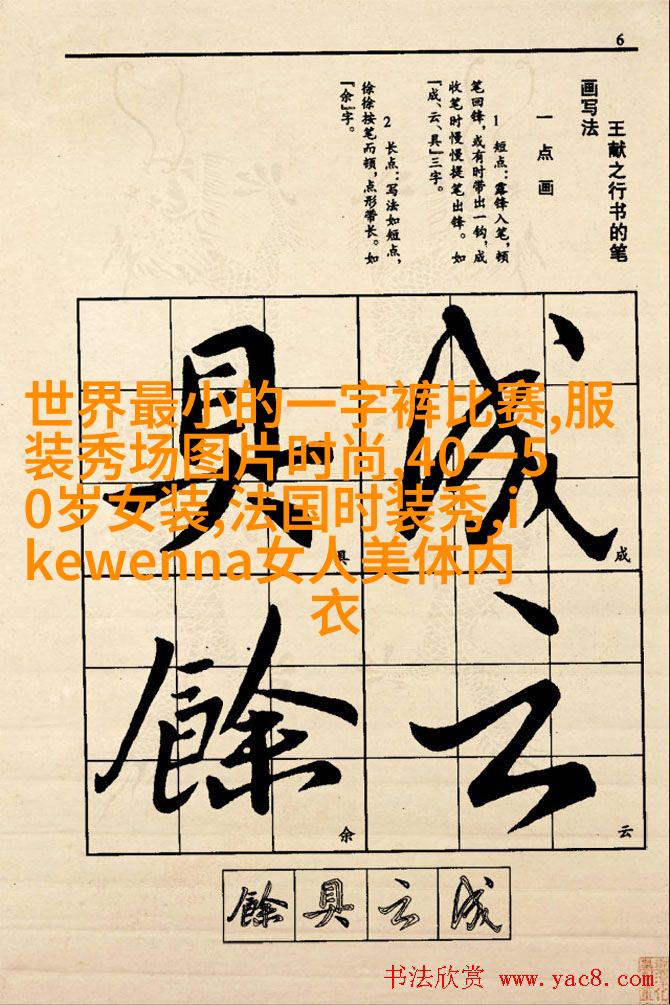 6
王献之行书的笔
画写法
一 点 画
1 短点:露锋入笔,顿
笔回锋,或有时带出一钩,成
收笔时慢慢提笔出锋。如
「成、云、具」三字。
2 长点:写法如短点,
徐徐按笔而顿,点形带长。如
「余」字。
成
具
云
餘
成
具
云
余
世界最小的一字裤比赛,服
装秀场图片时尚,40一5
0岁女装,法国时装秀,i
kewenna女人美体内
衣
餘 具 云 成
书法欣赏 www.yac8.com